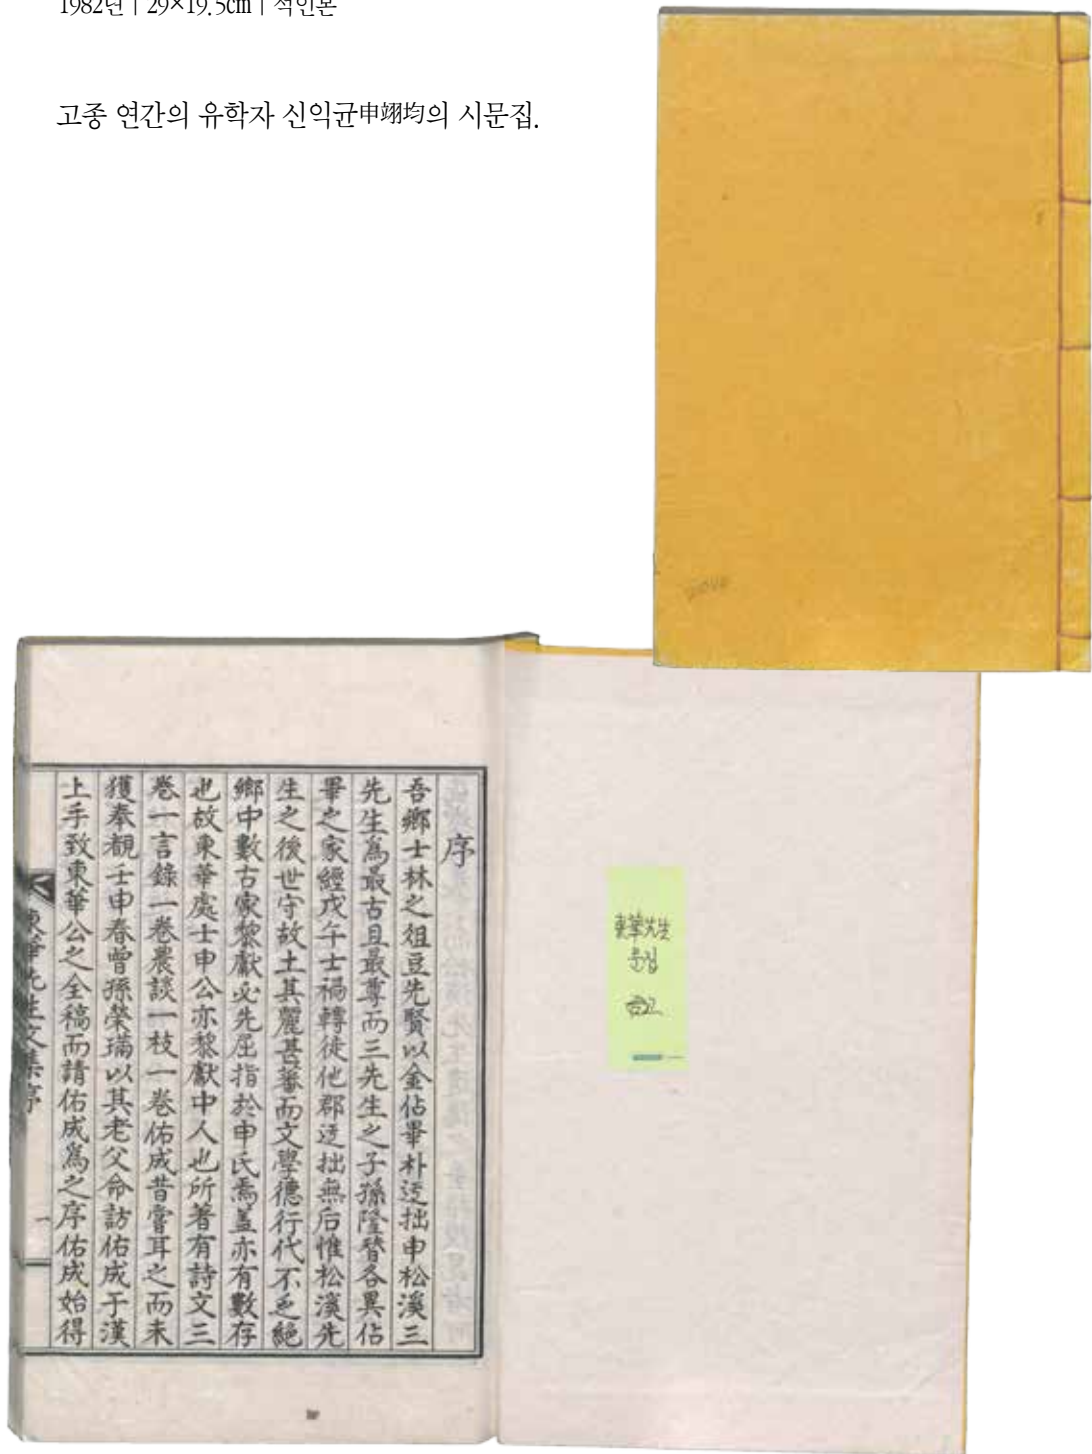 1982년 | 29×19.5㎝ | 석인본
고종 연간의 유학자 신익균申翊均의 시문집.
序
吾鄕士林之俎豆先賢以金佔畢朴迃拙申松溪三
先生爲最古且最尊而三先生之子孫隆替各異佔
畢之家經戊午士禍轉徙他郡迃拙無后惟松溪先
生之後世守故土其麗甚蕃而文學德行代不乏絶
鄕中數古家黎獻必先屈指於申氏焉盖亦有數存
也故東華處士申公亦黎獻中人也所著有詩文三
卷一言錄一卷農談一枝一卷佑成昔嘗耳之而未
獲奉覩壬申春曾孫榮瑞以其老父命訪佑成于漢
上手致東華公之全稿而請佑成爲之序佑成始得
東華先生文集序
一
東華先生
문집